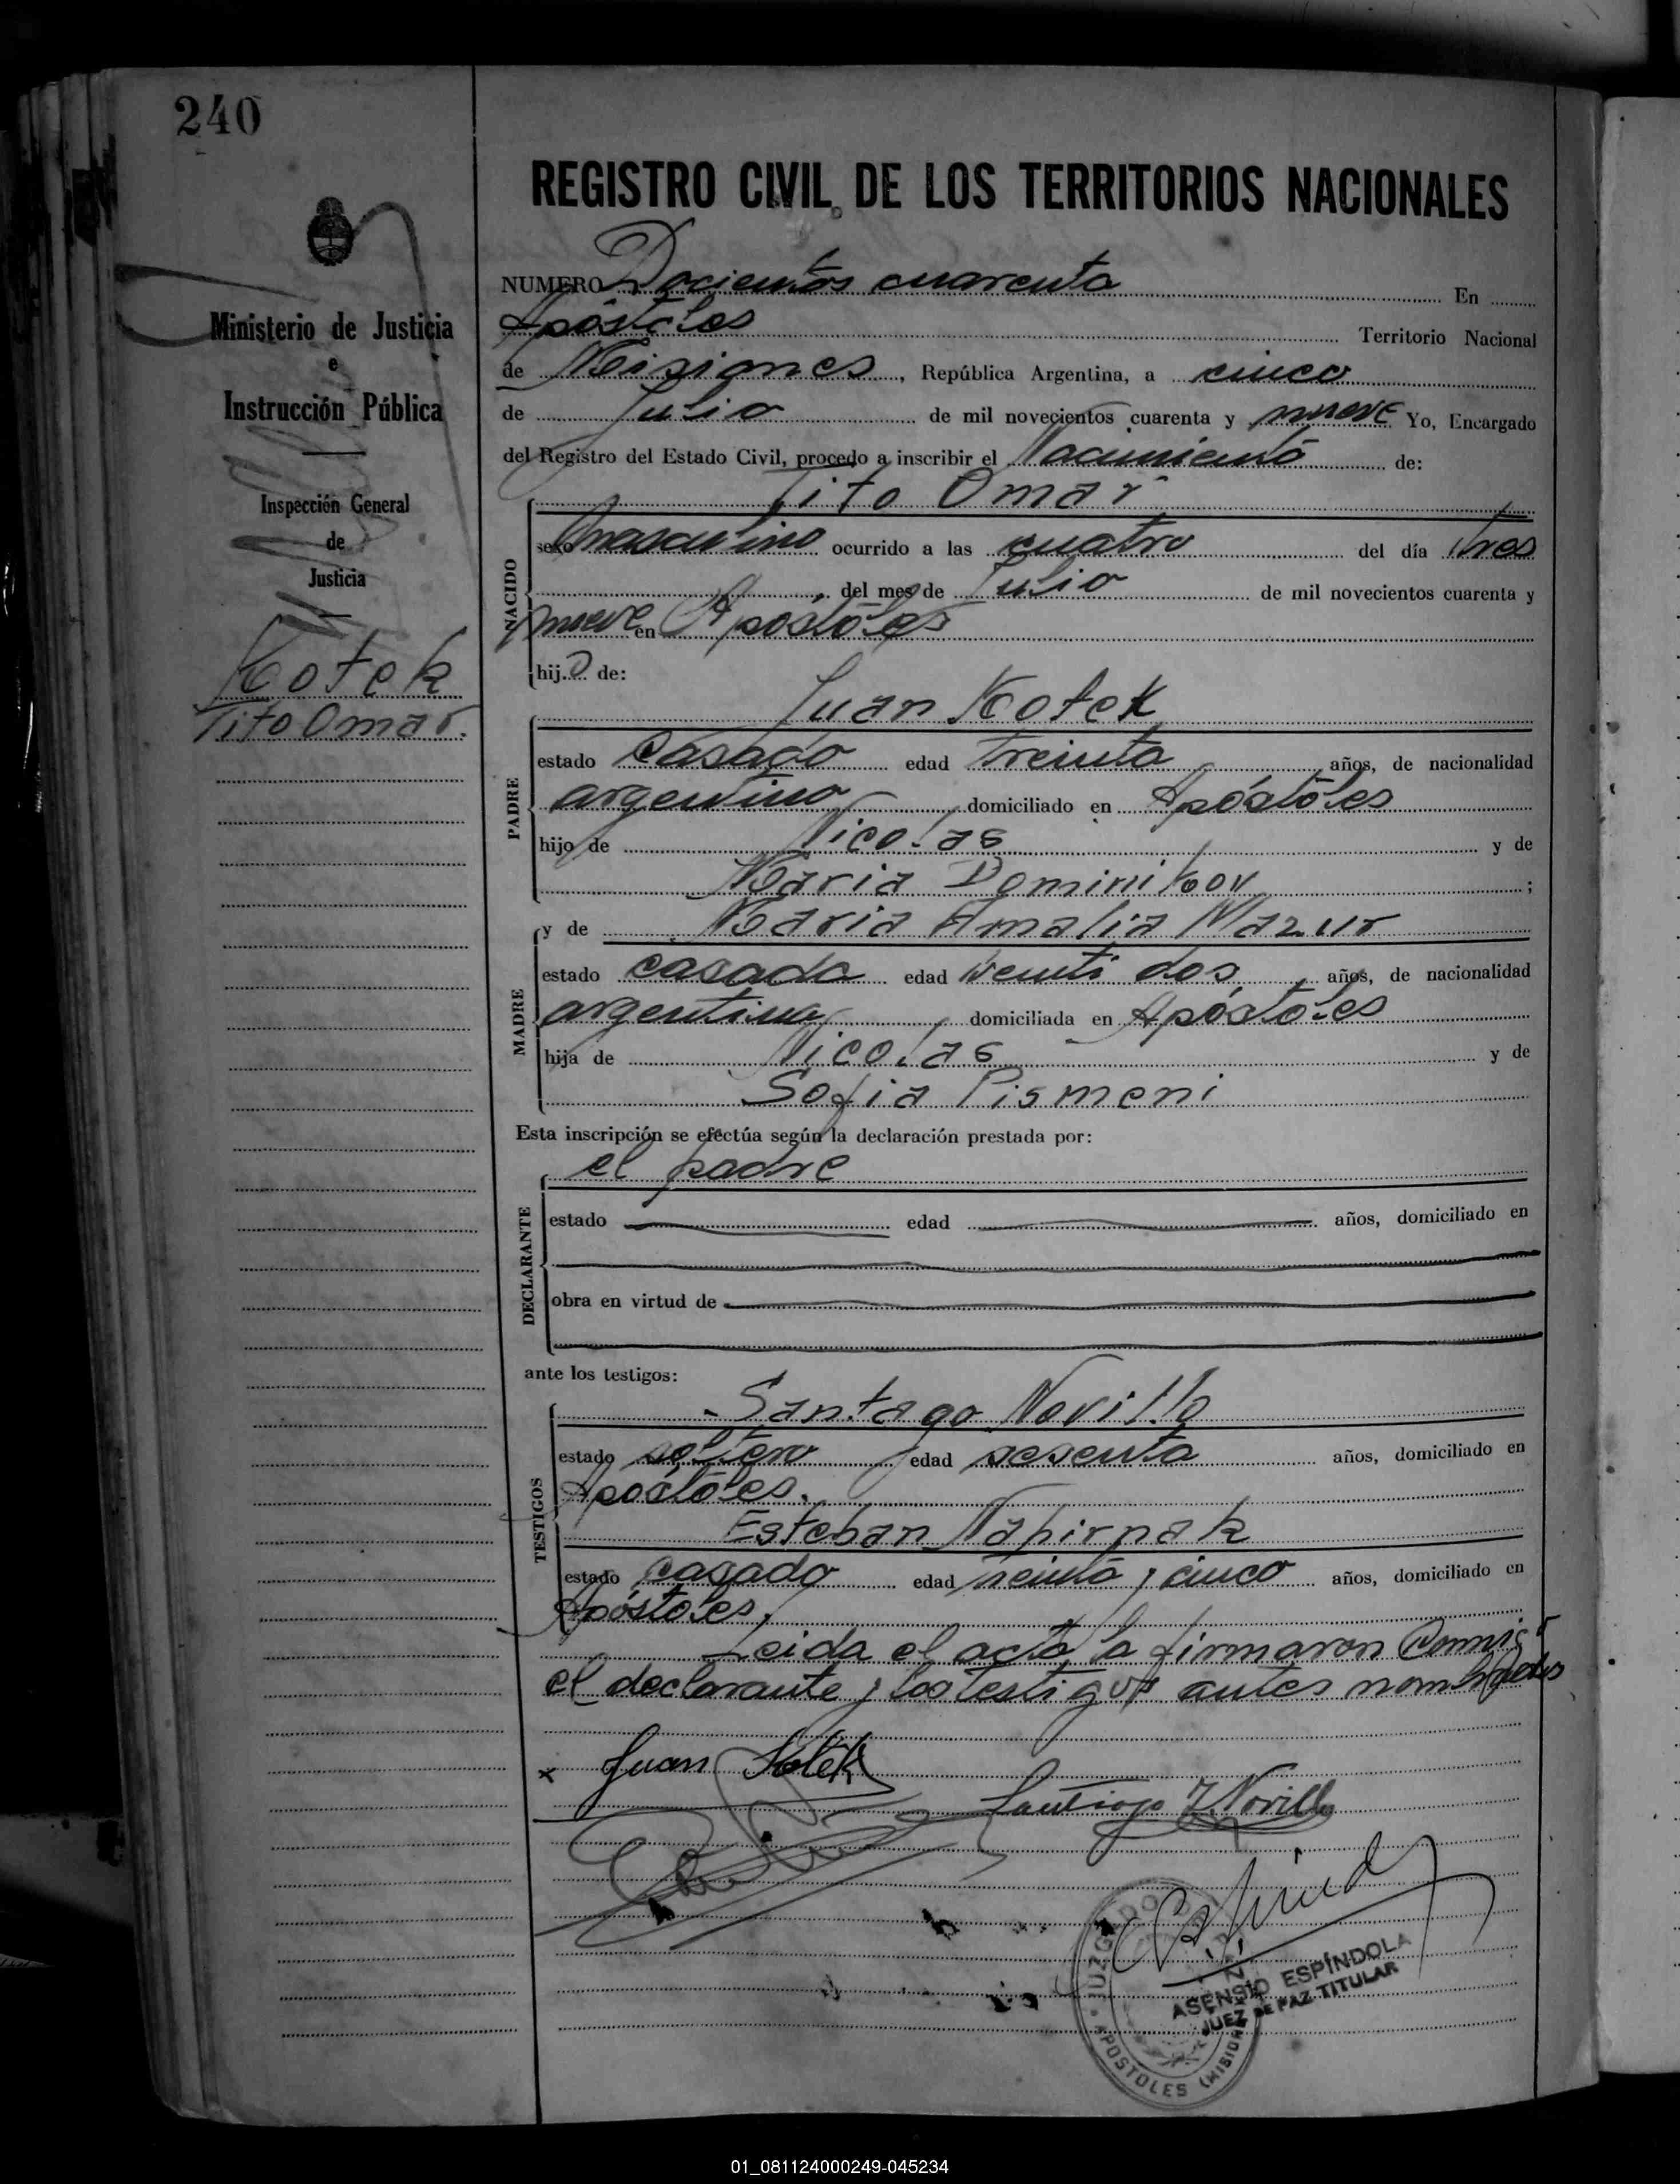 240
REGISTRO CIVIL DE LOS TERRITORIOS NACIONALES
Ministerio de Justicia
e
Instrucción Pública
Inspección General
de
Justicia
Kotek
Tito Omar.
NUMERO Docientos cuarenta En
Apóstoles Territorio Nacional
de Misiones, República Argentina, a cinco
de Julio de mil novecientos cuarenta y nueve Yo, Encargado
del Registro del Estado Civil, procedo a inscribir el Nacimiento de:
Tito Omar
NACIDO
sexo masculino ocurrido a las cuatro del día tres
del mes de Julio de mil novecientos cuarenta y
nueve en Apostóles
hijo de:
Juan Kotek
PADRE
estado casado edad treinta años, de nacionalidad
argentino domiciliado en Apóstoles
hijo de Nicolas y de
Maria Dominikov;
y de Maria Amalia Mazur
MADRE
estado casada edad veinti dos años, de nacionalidad
argentina domiciliada en Apóstoles
hija de Nicolas y de
Sofia Pismeni
Esta inscripción se efectúa según la declaración prestada por:
el padre
DECLARANTE
estado edad años, domiciliado en
obra en virtud de
ante los testigos:
Santago Novillo
TESTIGOS
estado soltero edad sesenta años, domiciliado en
Apóstoles.
Esteban Nahirnak
estado casado edad treinta y cinco años, domiciliado en
Apóstoles.
Leida el acta, la firmaron conmigo
el declarante y los testigos antes nombrados
x Juan Kotek
Santiago Novillo
JUZGADO DE PAZ
APOSTOLES (MISIONES)
ASENSIO ESPÍNDOLA
JUEZ DE PAZ TITULAR
01_081124000249-045234